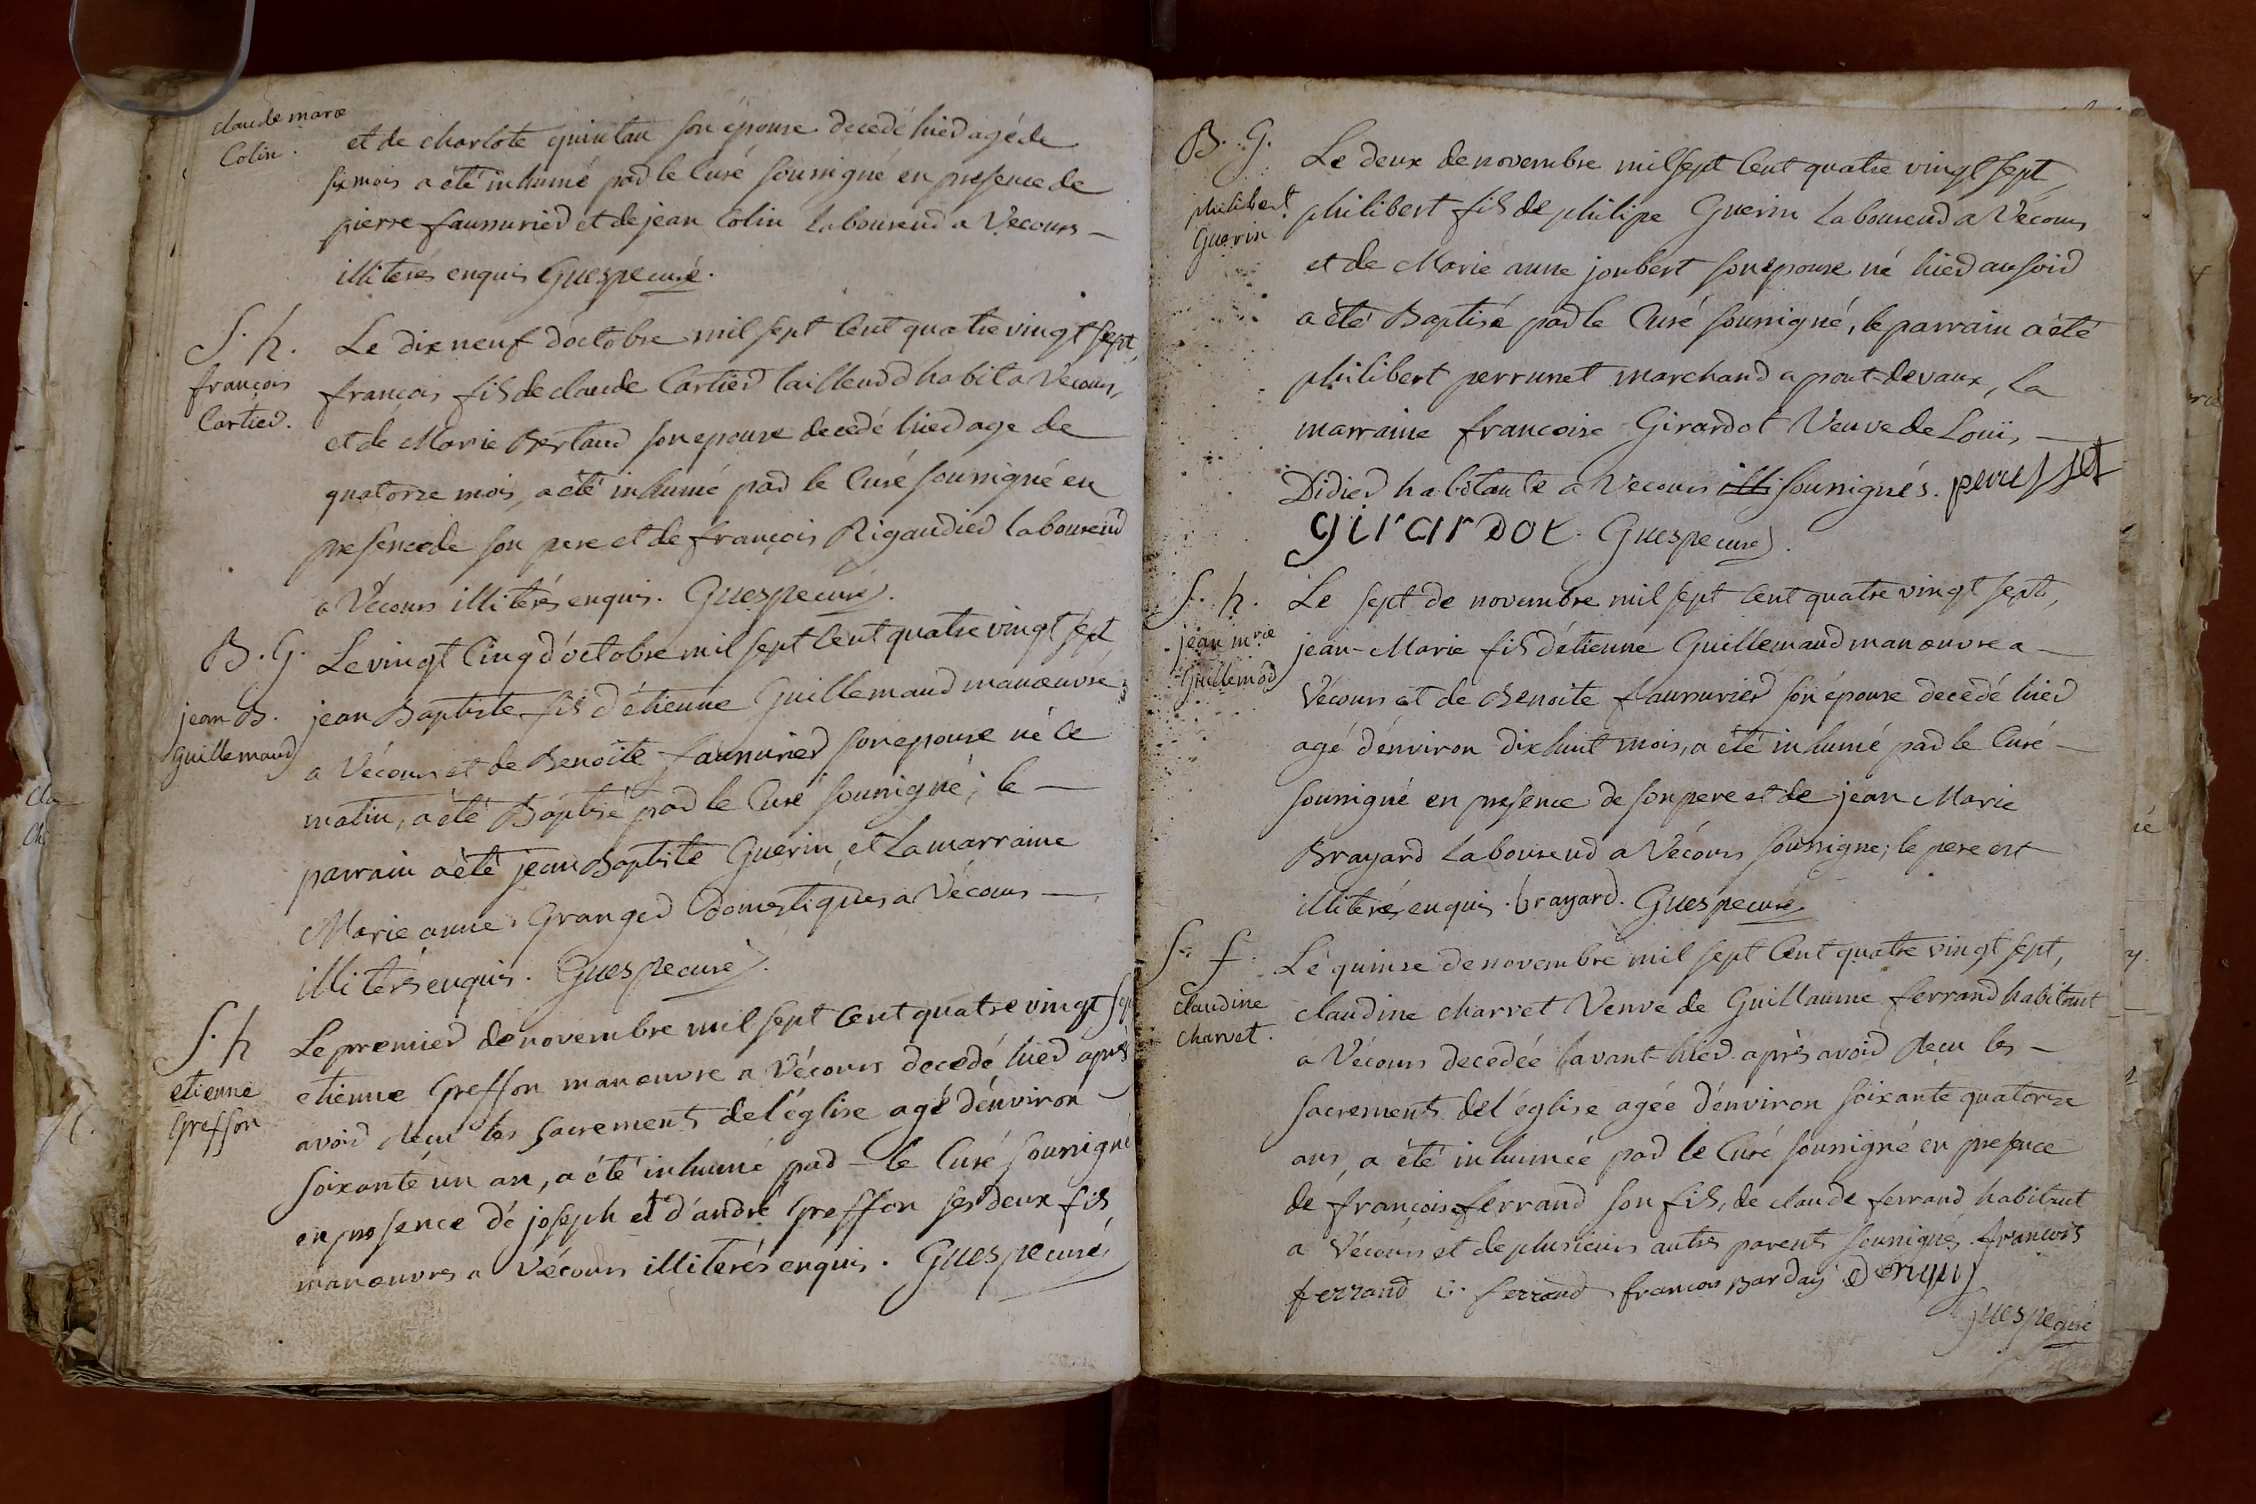 claude marie
Colin.
et de charlote quintan son épouse decedé hier agé de
six mois a été inhumé par le Curé soussigné en presence de
pierre faussurier et de jean Colin laboureur a Vécours
illiterés enquis Guespe curé.
S. h.
françois
Cartier.
Le dix neuf d'octobre mil sept Cent quatre vingt sept,
françois fils de claude Cartier tailleur d'habit a Vécours,
et de Marie Bertaud son epouse decedé hier age de
quatorze mois, a été inhumé par le Curé soussigné en
presence de son pere et de françois Rigaudier laboureur
a Vécours illiterés enquis. Guespe curé.
B. G.
jean B.
guillemaud
Le vingt Cinq d'octobre mil sept Cent quatre vingt sept,
jean Baptiste fils d'étienne Guillemaud manœuvre
a Vécours et de Benoite faussurier son epouse né Ce
matin, a été Baptisé par le Curé soussigné; le
parrain a été jean Baptiste Guerin et La marraine
Marie anne Granger Domestiques a Vécours
illiterés enquis. Guespe curé.
S. h
etienne
Greffon
Le premier de novembre mil sept Cent quatre vingt sept
etienne Greffon manœuvre a Vécours decedé hier après
avoir reçu les sacrements de l'église agé d'environ
soixante un an, a été inhumé par le Curé soussigné
en presence de joseph et d'andré Greffon ses deux fils
manœuvres a Vécours illiterés enquis. Guespe curé
B. G.
philibert
Guerin
Le deux de novembre mil sept Cent quatre vingt sept,
philibert fils de philipe Guerin laboureur a Vécours
et de Marie anne joubert son epouse né hier au soir
a été Baptisé par le Curé soussigné, le parrain a été
philibert perrunet marchand a pont-devaux, la
marraine francoise Girardot Veuve de Louis
Didier habitante a Vécours illi soussignés.
girardot. Guespe curé.
S. h.
jean m.rie
Guillemod
Le sept de novembre mil sept Cent quatre vingt sept,
jean-Marie fils d'étienne Guillemaud manœuvre a
Vécours et de Benoite faussurier son épouse decedé hier
agé d'environ dixhuit mois, a été inhumé par le Curé
soussigné en presence de son pere et de jean Marie
Brayard laboureur a Vécours soussigné; le pere est
illiteré enquis. brayard. Guespe curé
S. f.
claudine
charvet.
Le quinse de novembre mil sept Cent quatre vingt sept,
claudine charvet Veuve de Guillaume ferrand habitant
a Vécours decedée lavant-hier après avoir reçu les
sacrements de l'église agée d'environ soixante quatorze
ans, a été inhumée par le Curé soussigné en presence
de françois ferrand son fils, de claude ferrand habitant
a Vécours et de plusieurs autres parents soussignés. francois
ferrand c. ferrand francois
Guespe curé